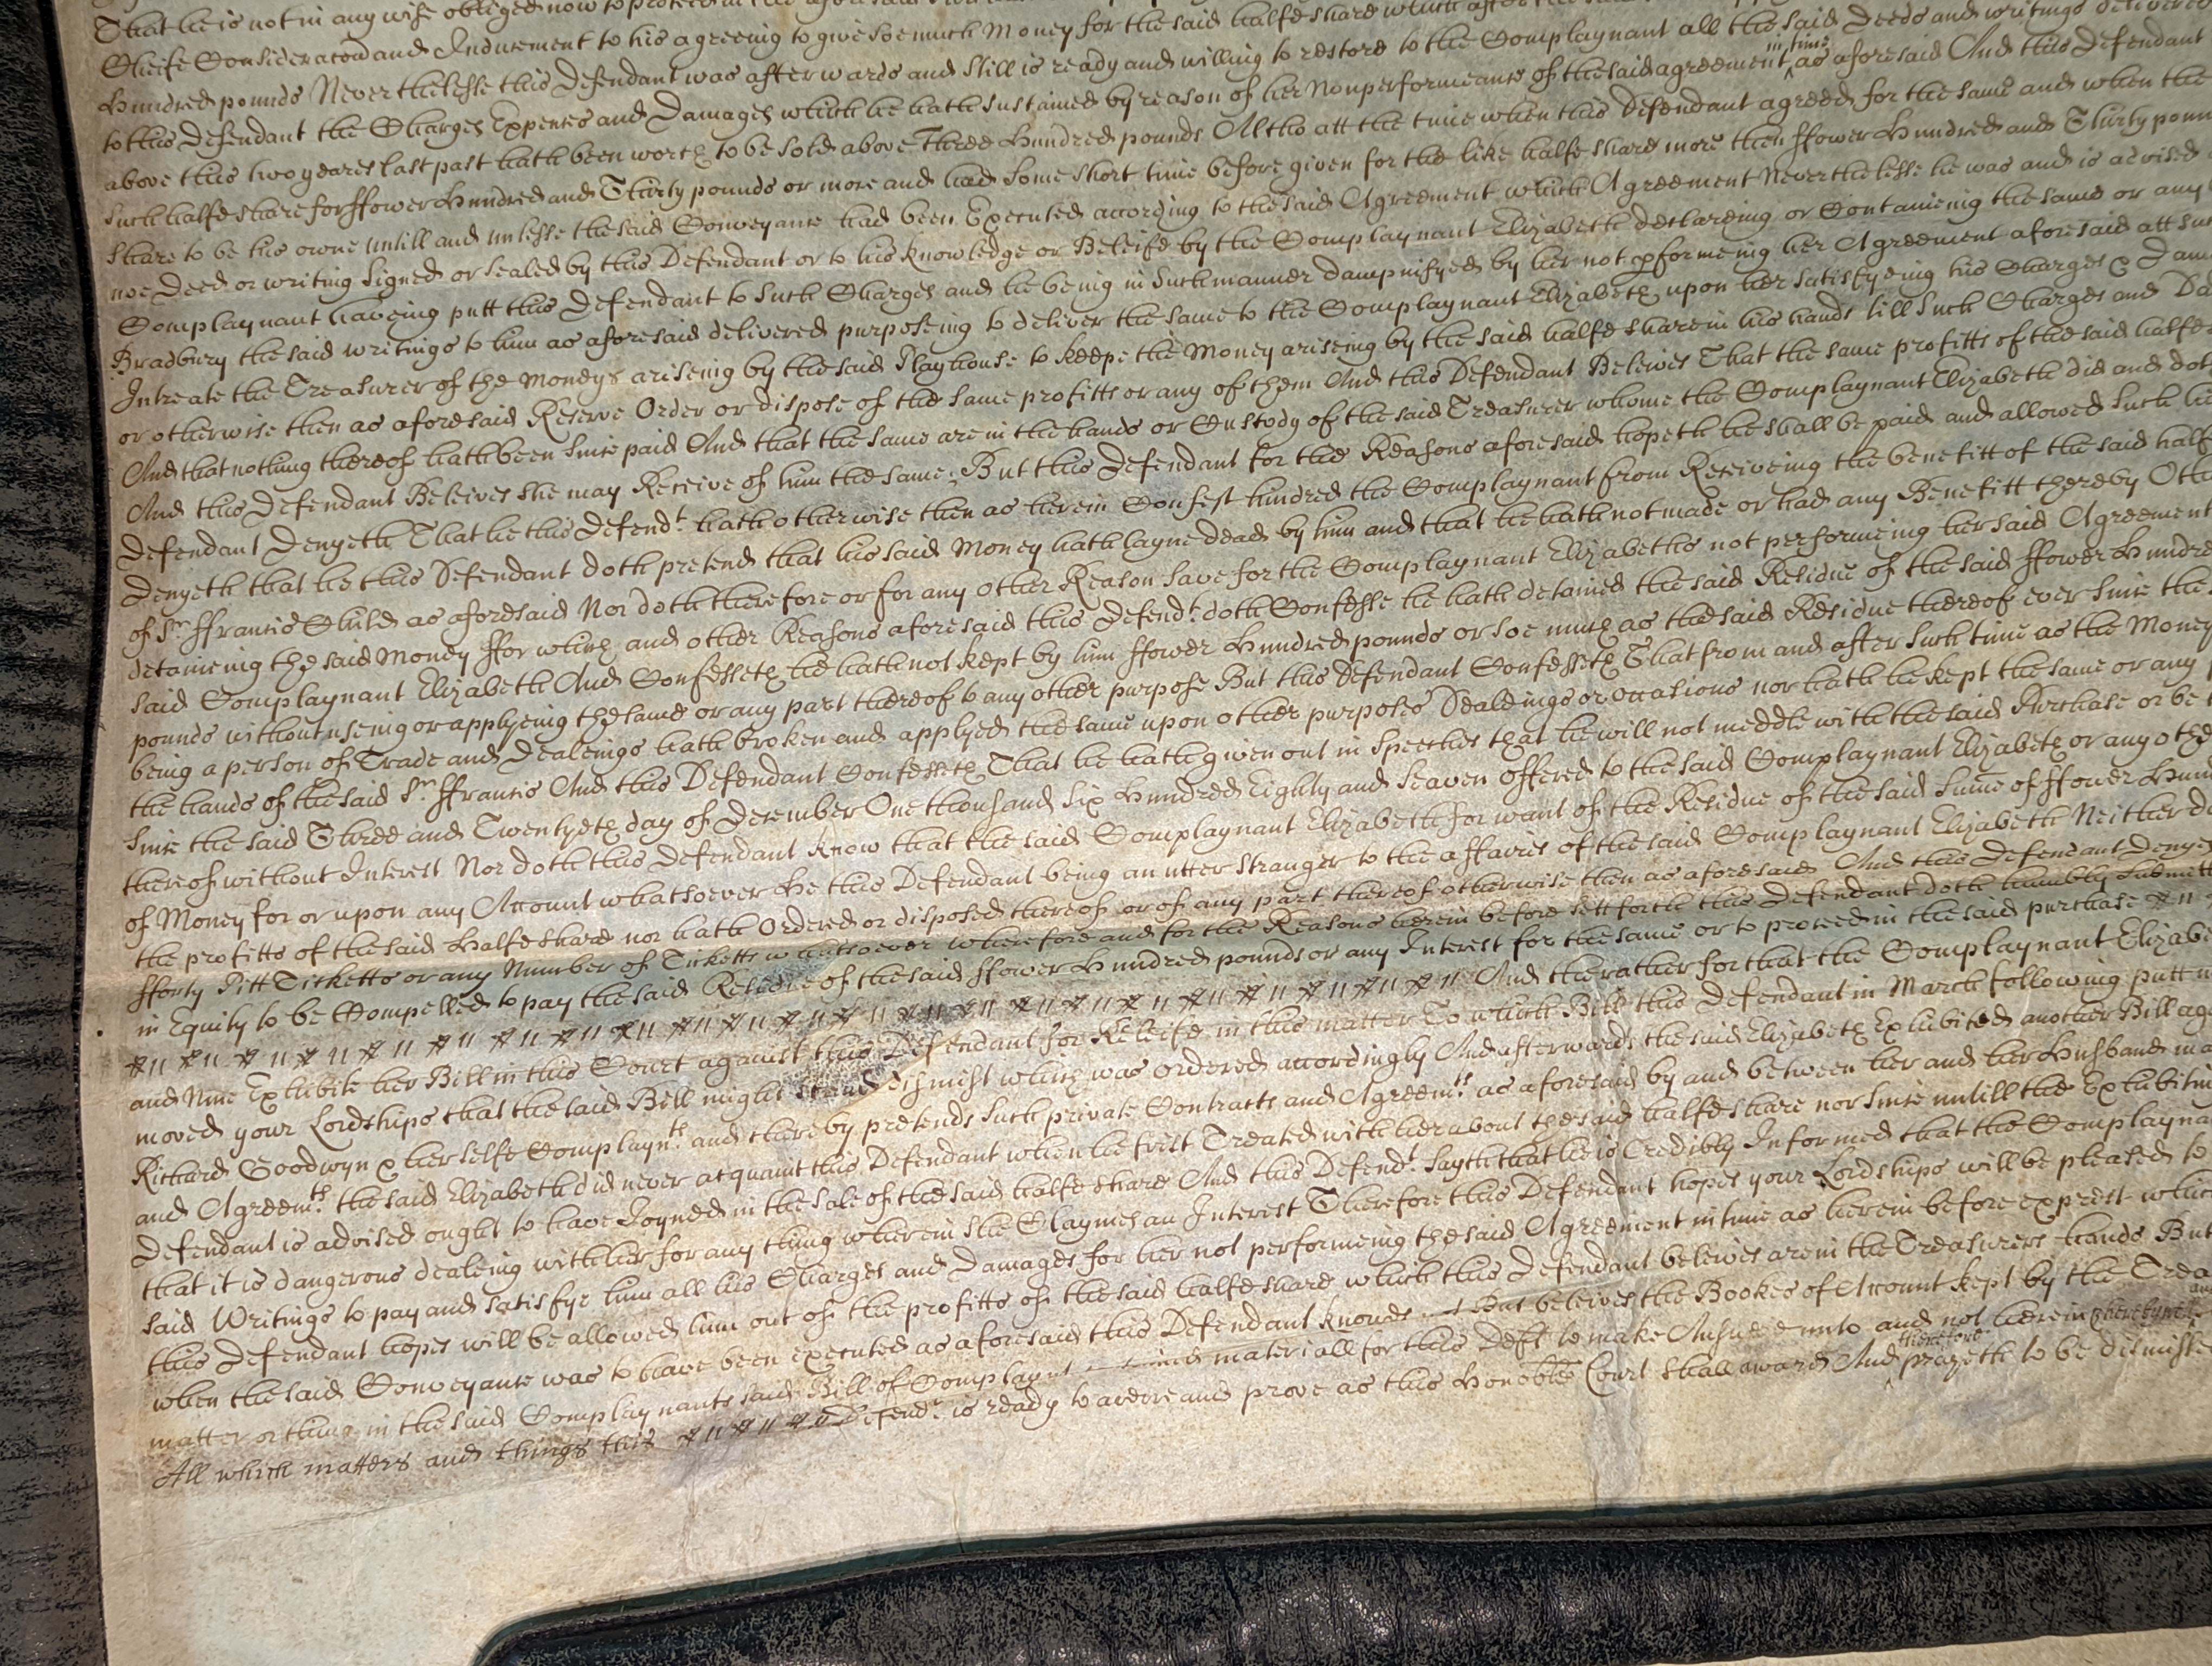 That he is not in any wise obliged now to proceed in the aforesaid
Cheife Consideracon and Inducement to his agreeing to give soe much Money for the said halfe share which after the
Hundred pounds Never thelesse this Defendant was afterwards and still is ready and willing to restore to the Complaynant all the said Deeds and writings delivered
to this Defendant the Charges Expences and Damages which he hath sustained by reason of her Nonperformeance of the said agreement in time as aforesaid And this Defendant
above this two yeares last past hath been worth to be sold above Three Hundred pounds Altho att the time when this Defendant agreed for the same and when the
such halfe share for ffower Hundred and Thirty pounds or more and had some short time before given for the like halfe share more then ffower Hundred and Thirty poun
share to be his owne untill and unlesse the said Conveyance had been Executed according to the said Agreement which Agreement Neverthelesse he was and is advised
noe Deed or writing signed or sealed by this Defendant or to his knowledge or Beleife by the Complaynant Elizabeth declareing or Contaneing the same or any
Complaynant haveing putt this Defendant to such Charges and he being in such manner dampnifyed by her not pformeing her Agreement aforesaid att su
Bradbury the said writings to him as aforesaid delivered purposeing to deliver the same to the Complaynant Elizabeth upon her satisfyeing his Charges & Dam
Intreate the Treasurer of the Moneys ariseing by the said Playhouse to keepe the Money ariseing by the said halfe share in his hands till such Charges and Da
or otherwise then as aforesaid Reserve Order or dispose of the same profitts or any of them And this Defendant Beleives That the same profitts of the said halfe
And that nothing thereof hath been since paid And that the same are in the hands or Custody of the said Treasurer whome the Complaynant Elizabeth did and dot
And this Defendant Beleives she may Receive of him the same; But this Defendant for the Reasons aforesaid hopeth he shall be paid and allowed such his
Defendant Denyeth That he this Defendt. hath otherwise then as herein Confest hindred the Complaynant from Receiveing the benefitt of the said half
Denyeth that he this Defendant doth pretend that his said Money hath layne dead by him and that he hath not made or had any Benefitt thereby Othe
of Sr. ffrancis Child as aforesaid Nor doth therefore or for any other Reason save for the Complaynant Elizabeths not performeing her said Agreement
detaineing the said Money ffor which and other Reasons aforesaid this Defendt. doth Confesse he hath detained the said Residue of the said ffower Hundred
said Complaynant Elizabeth And Confesseth he hath not kept by him ffower Hundred pounds or soe much as the said Residue thereof ever since the
pounds without useing or applyeing the same or any part thereof to any other purpose But this Defendant Confesseth That from and after such time as the Money
being a person of Trade and Dealeings hath broken and applyed the same upon other purposes Dealeings or occasions nor hath he kept the same or any
the hands of the said Sr. ffrancis And this Defendant Confesseth That he hath given out in speeches that he will not meddle with the said Purchase or be
Since the said Three and Twentyeth day of December One thousand Six Hundred Eighty and Seaven offered to the said Complaynant Elizabeth or any othe
thereof without Interest Nor doth this Defendant know that the said Complaynant Elizabeth for want of the Residue of the said Sume of ffower Hund
of Money for or upon any Account whatsoever He this Defendant being an utter stranger to the affaires of the said Complaynant Elizabeth Neither d
the profitts of the said Halfe share nor hath Ordered or disposed thereof or of any part thereof otherwise then as aforesaid And this Defendant Deny
fforty Pitt Ticketts or any Number of Ticketts whatsoever Wherefore and for the Reasons herein before sett forth this Defendant doth humbly submitt
in Equity to be Compelled to pay the said Residue of the said ffower Hundred pounds or any Interest for the same or to proceed in the said purchase
And the rather for that the Complaynant Elizabe
and Nine Exhibite her Bill in this Court against this Defendant for Releife in this matter To which Bill this Defendant in March following putt
moved your Lordships that the said Bill might stand dismist which was ordered accordingly And afterwards the said Elizabeth Exhibited another Bill aga
Richard Goodwyn & her selfe Complaynts. and thereby pretends such private Contracts and Agreemts. as aforesaid by and between her and her Husband
and Agreemts. the said Elizabeth did never acquaint this Defendant when he first Treated with her about the said halfe share nor since untill the Exhibitin
Defendant is advised ought to have Joyned in the sale of the said halfe share And this Defendt. sayth that he is Credibly Informed that the Complayna
that it is dangerous dealeing with her for any thing wherein she Claymes an Interest Therefore this Defendant hopes your Lordships will be pleased to
said Writings to pay and satisfye him all his Charges and Damages for her not performeing the said Agreement in time as herein before exprest which
this Defendant hopes will be allowed him out of the profitts of the said halfe share which this Defendant beleives are in the Treasurers hands But
when the said Conveyance was to have been executed as aforesaid this Defendant knowes But beleives the Bookes of Account kept by the Trea
matter or thing in the said Complaynants said Bill of Complaynt materiall for this Deft to make Answere unto and not herein
All which matters and things this Defendt. is ready to averre and prove as this Honoble Court shall award And therefore prayeth to be dismisse